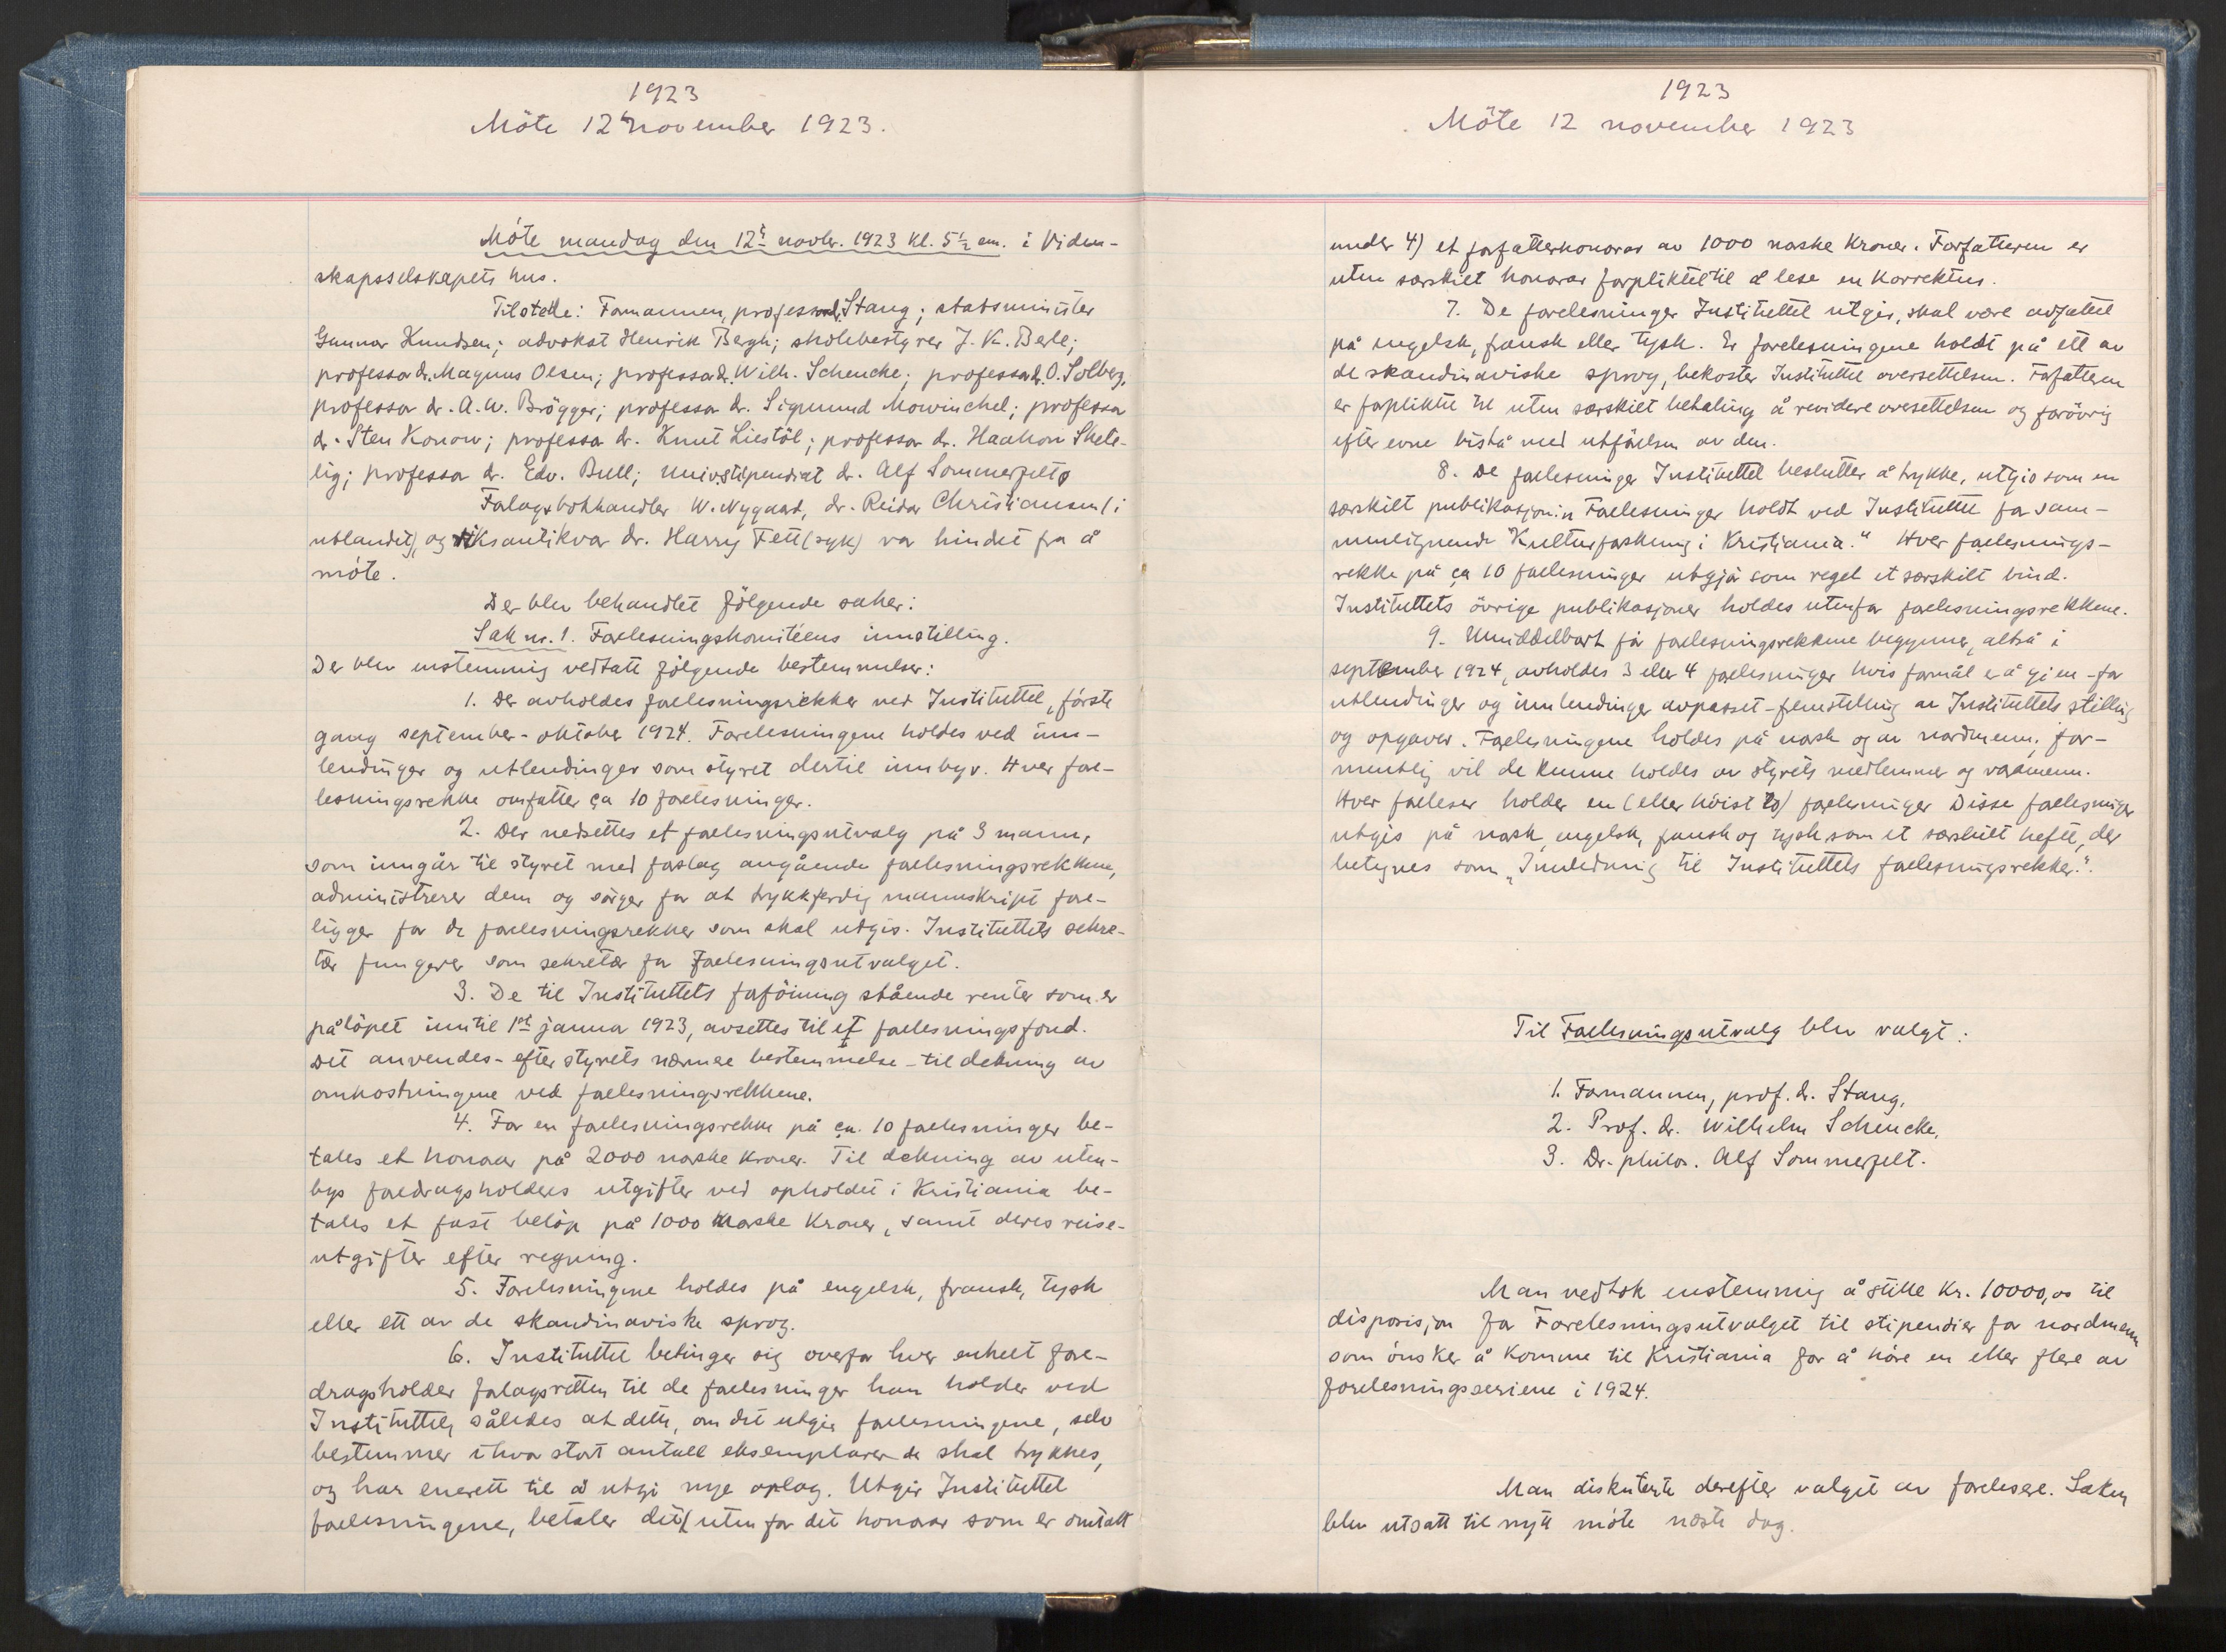 1923
Möte 12te november 1923.
Möte mandag den 12te novbr. 1923 kl. 5 1/2 em. i Viden-
skapsselskapets hus.
Tilstede: Formannen, professor dr. Stang; statsminister
Gunnar Knudsen; advokat Henrik Bergh; skolebestyrer J. K. Berle;
professor dr. Magnus Olsen; professor dr. Wilh. Schencke; professor dr. O. Solberg,
professor dr. A. W. Brögger; professor dr. Sigmund Mowinckel; professor
dr. Sten Konow; professor dr. Knut Liestöl; professor dr. Haakon Shete-
lig; professor dr. Edv. Bull; univ.stipendiat dr. Alf Sommerfelt.
Forlagsbokhandler W. Nygaard, dr. Reidar Christiansen (i
utlandet), og riksantikvar dr. Harry Fett (syk) var hindret fra å
möte.
Der blev behandlet fölgende saker:
Sak nr. 1. Forelesningskomitéens innstilling.
Der blev enstemmig vedtatt fölgende bestemmelser:
1. Der avholdes forelesningsrekker ved Instituttet, förste
gang september-oktober 1924. Forelesningene holdes ved inn-
lendinger og utlendinger som styret dertil innbyr. Hver fore-
lesningsrekke omfatter ca 10 forelesninger.
2. Der nedsettes et forelesningsutvalg på 3 mann,
som inngår til styret med forslag angående forelesningsrekkene,
administrerer dem og sörger for at trykkferdig manuskript fore-
ligger for de forelesningsrekker som skal utgis. Instituttets sekre-
tær fungerer som sekretær for Forelesningsutvalget.
3. De til Instituttets forföining stående renter som er
pålöpet inntil 1st januar 1923, avsettes til et forelesningsfond.
Det anvendes - efter styrets nærmere bestemmelse - til dekning av
omkostningene ved forelesningsrekkene.
4. For en forelesningsrekke på ca. 10 forelesninger be-
tales et honorar på 2000 norske kroner. Til dekning av uten-
bys foredragsholderes utgifter ved opholdet i Kristiania be-
tales et fast belöp på 1000 norske kroner, samt deres reise-
utgifter efter regning.
5. Forelesningene holdes på engelsk, fransk, tysk
eller ett av de skandinaviske sprog.
6. Instituttet betinger sig overfor hver enkelt fore-
dragsholder forlagsretten til de forelesninger han holder ved
Instituttet, således at dette, om det utgir forelesningene, selv
bestemmer i hvor stort antall eksemplarer de skal trykkes,
og har enerett til å utgi nye oplag. Utgir Instituttet
forelesningene, betaler det, utenfor det honorar som er omtalt
1923
Möte 12 november 1923
under 4) et forfatterhonorar av 1000 norske kroner. Forfatteren er
uten særskilt honorar forpliktet til å lese en korrektur.
7. De forelesninger Instituttet utgir, skal være avfattet
på engelsk, fransk eller tysk. Er forelesningene holdt på ett av
de skandinaviske sprog, bekoster Instituttet oversettelsen. Forfatteren
er forpliktet til uten særskilt betaling å revidere oversettelsen og forövrig
efter evne bistå med utförelsen av den.
8. De forelesninger Instituttet beslutter å trykke, utgis som en
særskilt publikasjon: „Forelesninger holdt ved Instituttet for sam-
menlignende Kulturforskning i Kristiania." Hver forelesnings-
rekke på ca 10 forelesninger utgjör som regel et særskilt bind.
Instituttets övrige publikasjoner holdes utenfor forelesningsrekkene.
9. Umiddelbart för forelesningsrekkene begynner, altså i
september 1924, avholdes 3 eller 4 forelesninger hvis formål er å gi en - for
utlendinger og innlendinger avpasset - fremstilling av Instituttets stilling
og opgaver. Forelesningene holdes på norsk og av nordmenn; for-
mentlig vil de kunne holdes av styrets medlemmer og varamenn.
Hver foreleser holder en (eller höist to) forelesninger. Disse forelesninger
utgis på norsk, engelsk, fransk og tysk som et særskilt hefte, der
betegnes som „Innledning til Instituttets forelesningsrekker.".
Til Forelesningsutvalg blev valgt:
1. Formannen, prof. dr. Stang,
2. Prof. dr. Wilhelm Schencke,
3. Dr. philos. Alf Sommerfelt.
Man vedtok enstemmig å stille kr. 10000,00 til
disposisjon for Forelesningsutvalget til stipendier for nordmenn
som önsker å komme til Kristiania for å höre en eller flere av
forelesningsseriene i 1924.
Man diskuterte derefter valget av forelesere. Saken
blev utsatt til nytt möte næste dag.